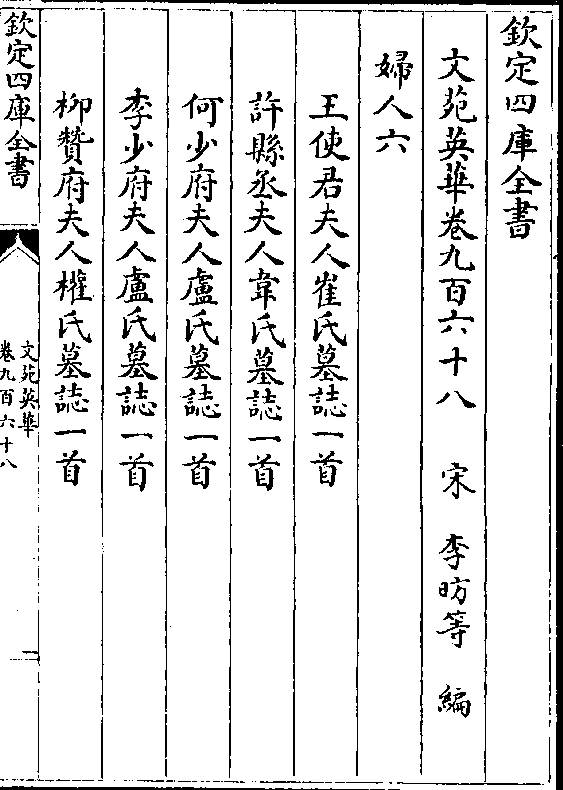 欽定四庫全書
文苑英華卷九百六十八　宋　李昉等　編
婦人六
王使君夫人崔氏墓誌一首
許縣丞夫人韋氏墓誌一首
何少府夫人盧氏墓誌一首
李少府夫人盧氏墓誌一首
柳贊府夫人權氏墓誌一首
欽定四庫全書
文苑英華
卷九百六十八
一